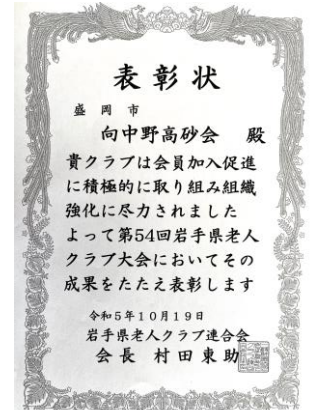 表彰状
盛岡市
向中野高砂会 殿
貴クラブは会員加入促進
に積極的に取り組み組織
強化に尽力されました
よって第54回岩手県老人
クラブ大会においてその
成果をたたえ表彰します
令和5年10月19日
岩手県老人クラブ連合会
会長 村田東助